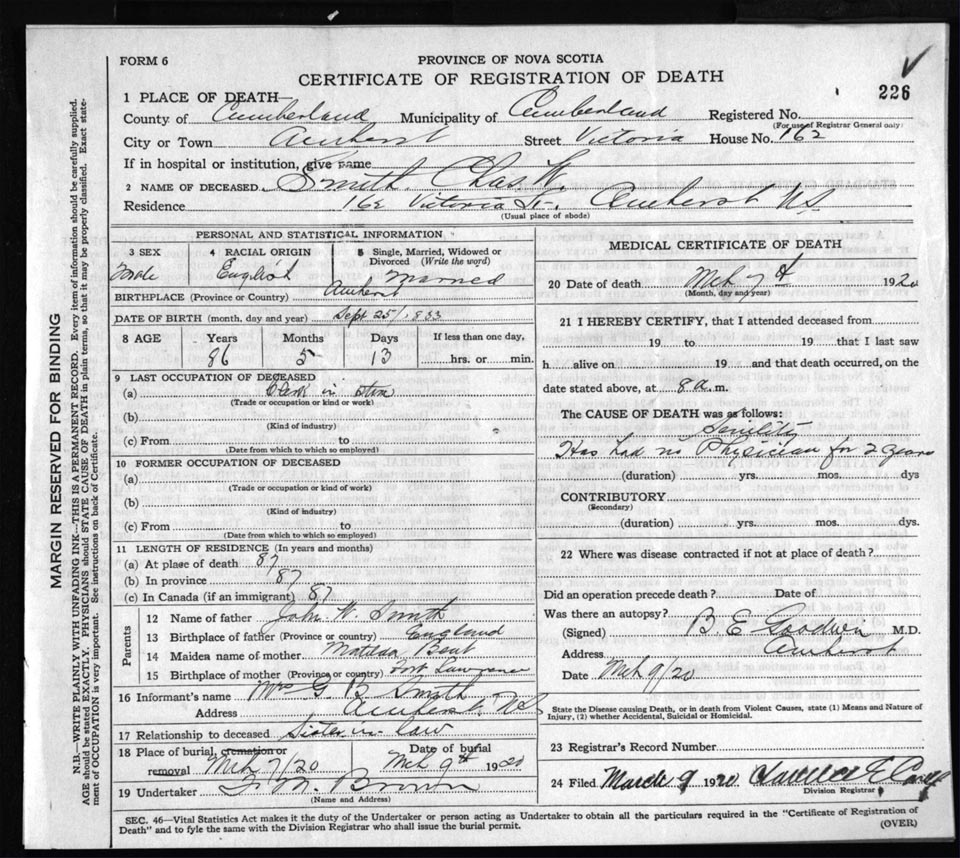 FORM 6
PROVINCE OF NOVA SCOTIA
CERTIFICATE OF REGISTRATION OF DEATH
226
1 PLACE OF DEATH—
County of Cumberland Municipality of Cumberland Registered No.
(For use of Registrar General only)
City or Town Amherst Street Victoria House No. 162
If in hospital or institution, give name
2 NAME OF DECEASED Smith Chas. W.
Residence 162 Victoria St. Amherst NS
(Usual place of abode)
PERSONAL AND STATISTICAL INFORMATION
3 SEX
Male
4 RACIAL ORIGIN
English
5 Single, Married, Widowed or Divorced (Write the word)
Married
BIRTHPLACE (Province or Country) Amherst
DATE OF BIRTH (month, day and year) Sept 25/1833
8 AGE Years Months Days If less than one day,
86 5 13 hrs. or min.
9 LAST OCCUPATION OF DECEASED
(a) Clerk in Store
(Trade or occupation or kind or work)
(b)
(Kind of industry)
(c) From to
(Date from which to which so employed)
10 FORMER OCCUPATION OF DECEASED
(a)
(Trade or occupation or kind of work)
(b)
(Kind of industry)
(c) From to
(Date from which to which so employed)
11 LENGTH OF RESIDENCE (In years and months)
(a) At place of death 87
(b) In province 87
(c) In Canada (if an immigrant) 87
Parents
12 Name of father John W. Smith
13 Birthplace of father (Province or country) England
14 Maiden name of mother Matilda Bent
15 Birthplace of mother (Province or country) Fort Lawrence
16 Informant's name Mrs G B Smith
Address Amherst NS
17 Relationship to deceased Sister in law
18 Place of burial, cremation or removal Mch 7/20 Date of burial Mch 9th 1920
19 Undertaker Brown
(Name and Address)
MEDICAL CERTIFICATE OF DEATH
20 Date of death Mch 7th 1920
(Month, day and year)
21 I HEREBY CERTIFY, that I attended deceased from
19 to 19 that I last saw
h alive on 19 and that death occurred, on
date stated above, at 8 a. m.
The CAUSE OF DEATH was as follows:
Senility
Has had no Physician for 2 years
(duration) yrs. mos. dys
CONTRIBUTORY
(Secondary)
(duration) yrs. mos. dys.
22 Where was disease contracted if not at place of death?
Did an operation precede death? Date of
Was there an autopsy?
(Signed) B. E. Goodwin M.D.
Address Amherst
Date Mch 9/20
State the Disease causing Death, or in death from Violent Causes, state (1) Means and Nature of
Injury, (2) whether Accidental, Suicidal or Homicidal.
23 Registrar's Record Number
24 Filed March 9 1920
Division Registrar
SEC. 46—Vital Statistics Act makes it the duty of the Undertaker or person acting as Undertaker to obtain all the particulars required in the "Certificate of Registration of
Death" and to fyle the same with the Division Registrar who shall issue the burial permit.
(OVER)
MARGIN RESERVED FOR BINDING
N.B.—WRITE PLAINLY WITH UNFADING INK—THIS IS A PERMANENT RECORD. Every item of information should be carefully supplied.
AGE should be stated EXACTLY. PHYSICIANS should STATE CAUSE OF DEATH in plain terms, so that it may be properly classified. Exact state-
ment of OCCUPATION is very important. See instructions on back of Certificate.